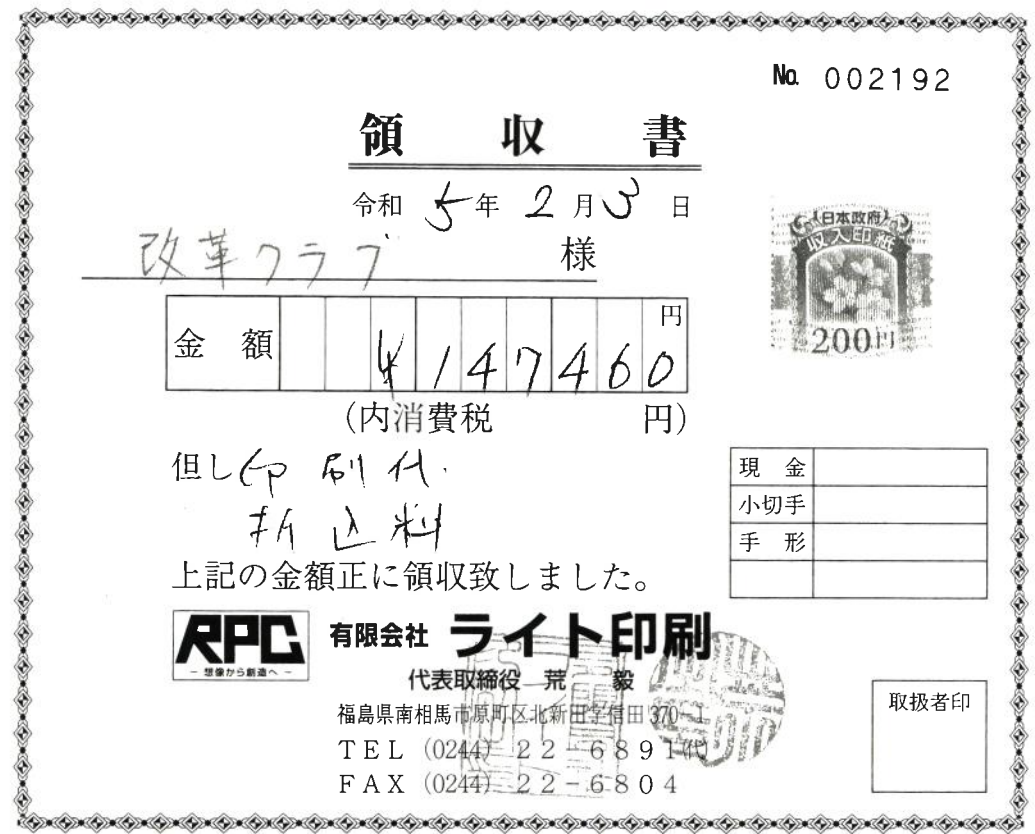 No. 002192
領収書
令和 5年 2月3日
改革クラブ 様
日本政府
収入印紙
200円
金額 ¥147460円
(内消費税 円)
但し印刷代
折込料
現金
小切手
手形
上記の金額正に領収致しました。
RPC
－想像から創造へ－
有限会社 ライト印刷
代表取締役 荒 毅
福島県南相馬市原町区北新田字信田370-1
TEL (0244) 22-6891㈹
FAX (0244) 22-6804
取扱者印